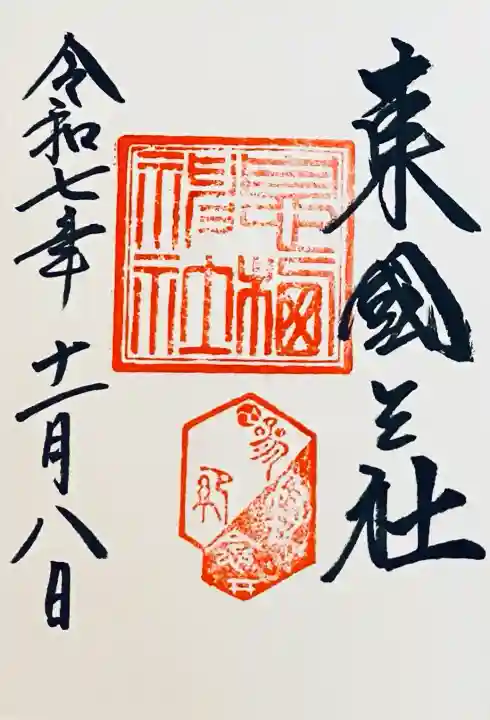 東國三社
息栖神社
令和七年十一月八日